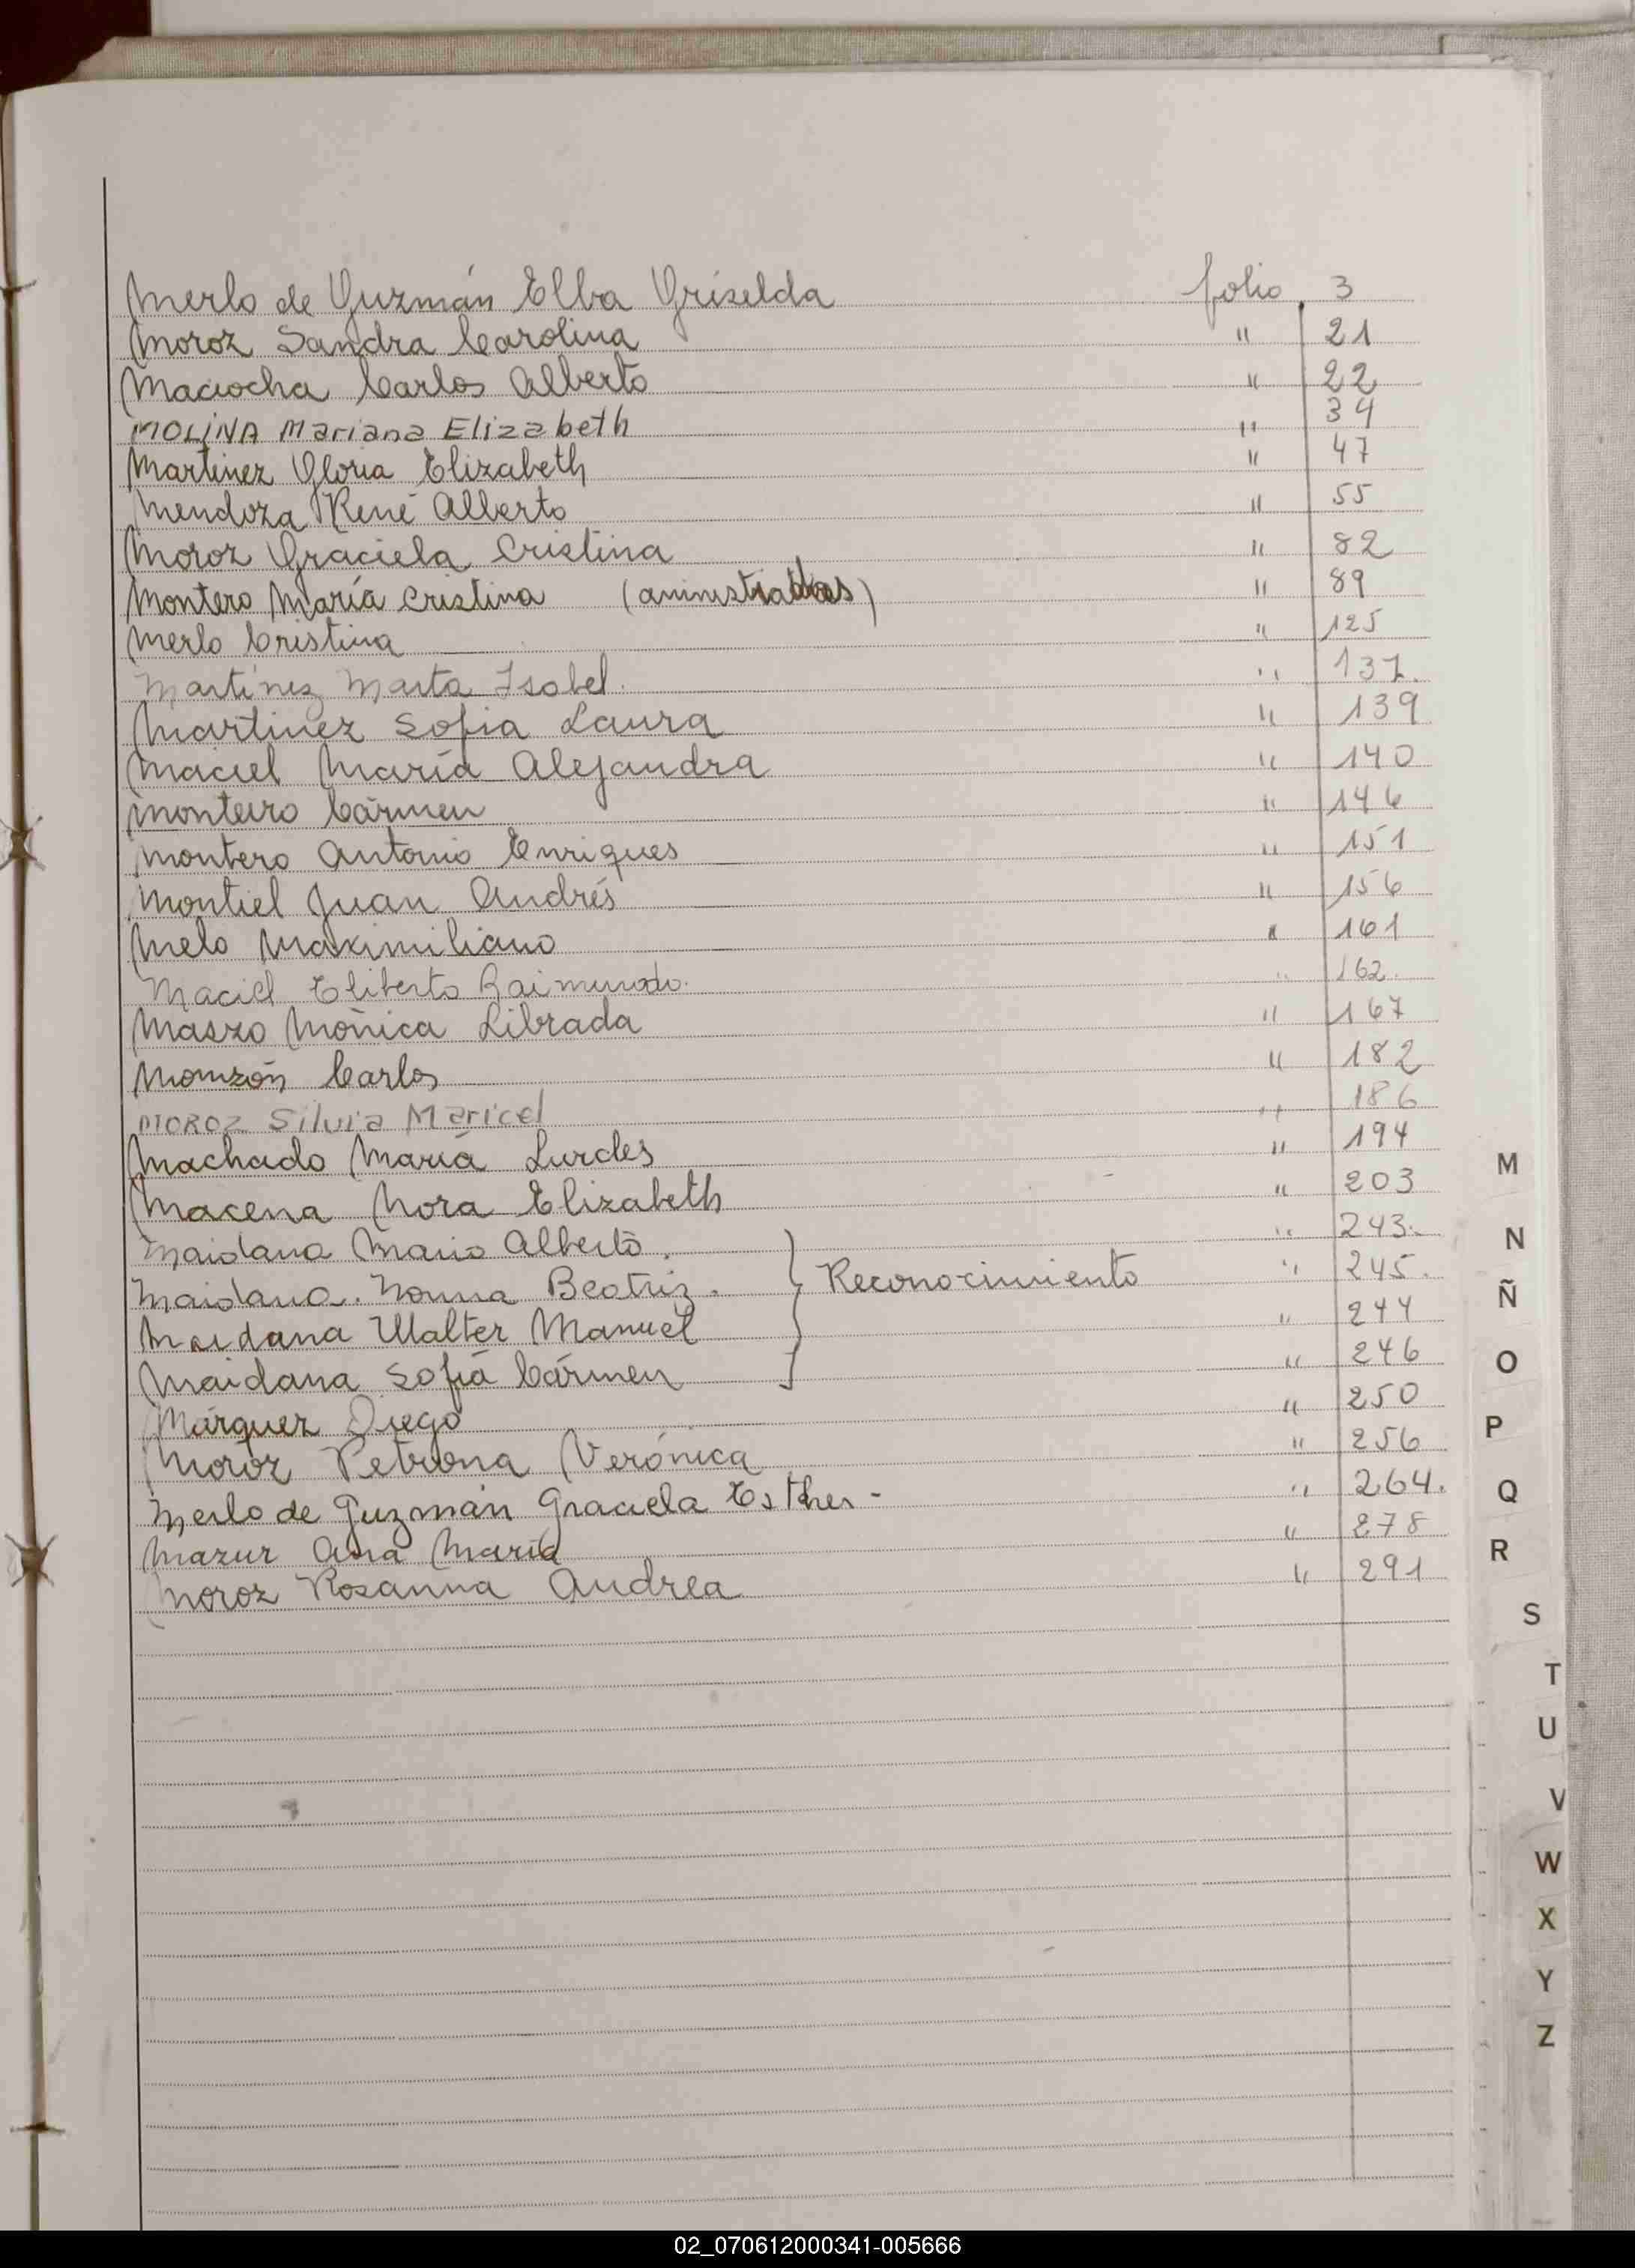 Merlo de Guzmán Elba Griselda folio 3
Moroz Sandra Carolina " 21
Maciocha Carlos Alberto " 22
MOLINA Mariana Elizabeth " 34
Martinez Gloria Elizabeth " 47
Mendoza René Alberto " 55
Moroz Graciela Cristina " 82
Montero María Cristina " 89
Merlo Cristina " 125
Martinez Marta Isabel. " 137.
Martinez Sofia Laura " 139
Maciel María Alejandra " 140
Monteiro Cármen " 146
Montero Antonio Enriques " 151
Montiel Juan Andrés " 156
Melo Maximiliano " 161
Maciel Eliberto Raimundo. " 162.
Maszo Mónica Librada " 167
Monzón Carlos " 182
MOROZ Silvia Maricel " 186
Machado María Lurdes " 194
Macena Nora Elizabeth " 203
Maidana Mario Alberto. " 243.
Maidana. Norma Beatriz. } Reconocimiento " 245.
Maidana Walter Manuel " 244
Maidana Sofía Cármen " 246
Márquez Diego " 250
Moroz Petrona Verónica " 256
Merlo de Guzmán Graciela Esther - " 264.
Mazur Ana María " 278
Moroz Rosanna Andrea " 291
M
N
Ñ
O
P
Q
R
S
T
U
V
W
X
Y
Z
02_070612000341-005666